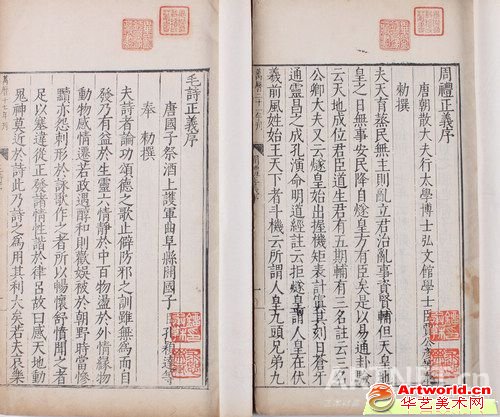 周禮正義序
唐朝散大夫行太學博士弘文館學士臣賈公彥等
勅撰
夫天育蒸民無主則亂立君治亂事資賢輔但天皇地
皇之日無事安民降自燧皇方有臣矣是以易通卦
云天地成位君臣道生君有五期輔有三名註云三名
公卿大夫又云燧皇始出握機矩表計寘其刻曰蒼牙
通靈昌之成孔演命明道經註云拒燧皇謂人皇在伏
羲前風姓始王天下者斗機云所謂人皇九頭兄弟九
萬曆二十一年刊
毛詩正義序
唐國子祭酒上護軍曲阜縣開國子 孔穎達等
奉 勅撰
夫詩者論功頌德之歌止僻防邪之訓雖無為而自
發乃有益於生靈六情靜於中百物盪於外情緣物
動物感情遷若政遇醇和則歡娛被於朝野時當慘
黷亦怨刺形於詠歌作之者所以暢懷舒憤聞之者
足以塞違從正發諸情性諧於律呂故曰感天地動
鬼神莫近於詩此乃詩之為用其利大矣若夫哀樂
萬曆十七年刊
Artworld.cn
华艺美术网